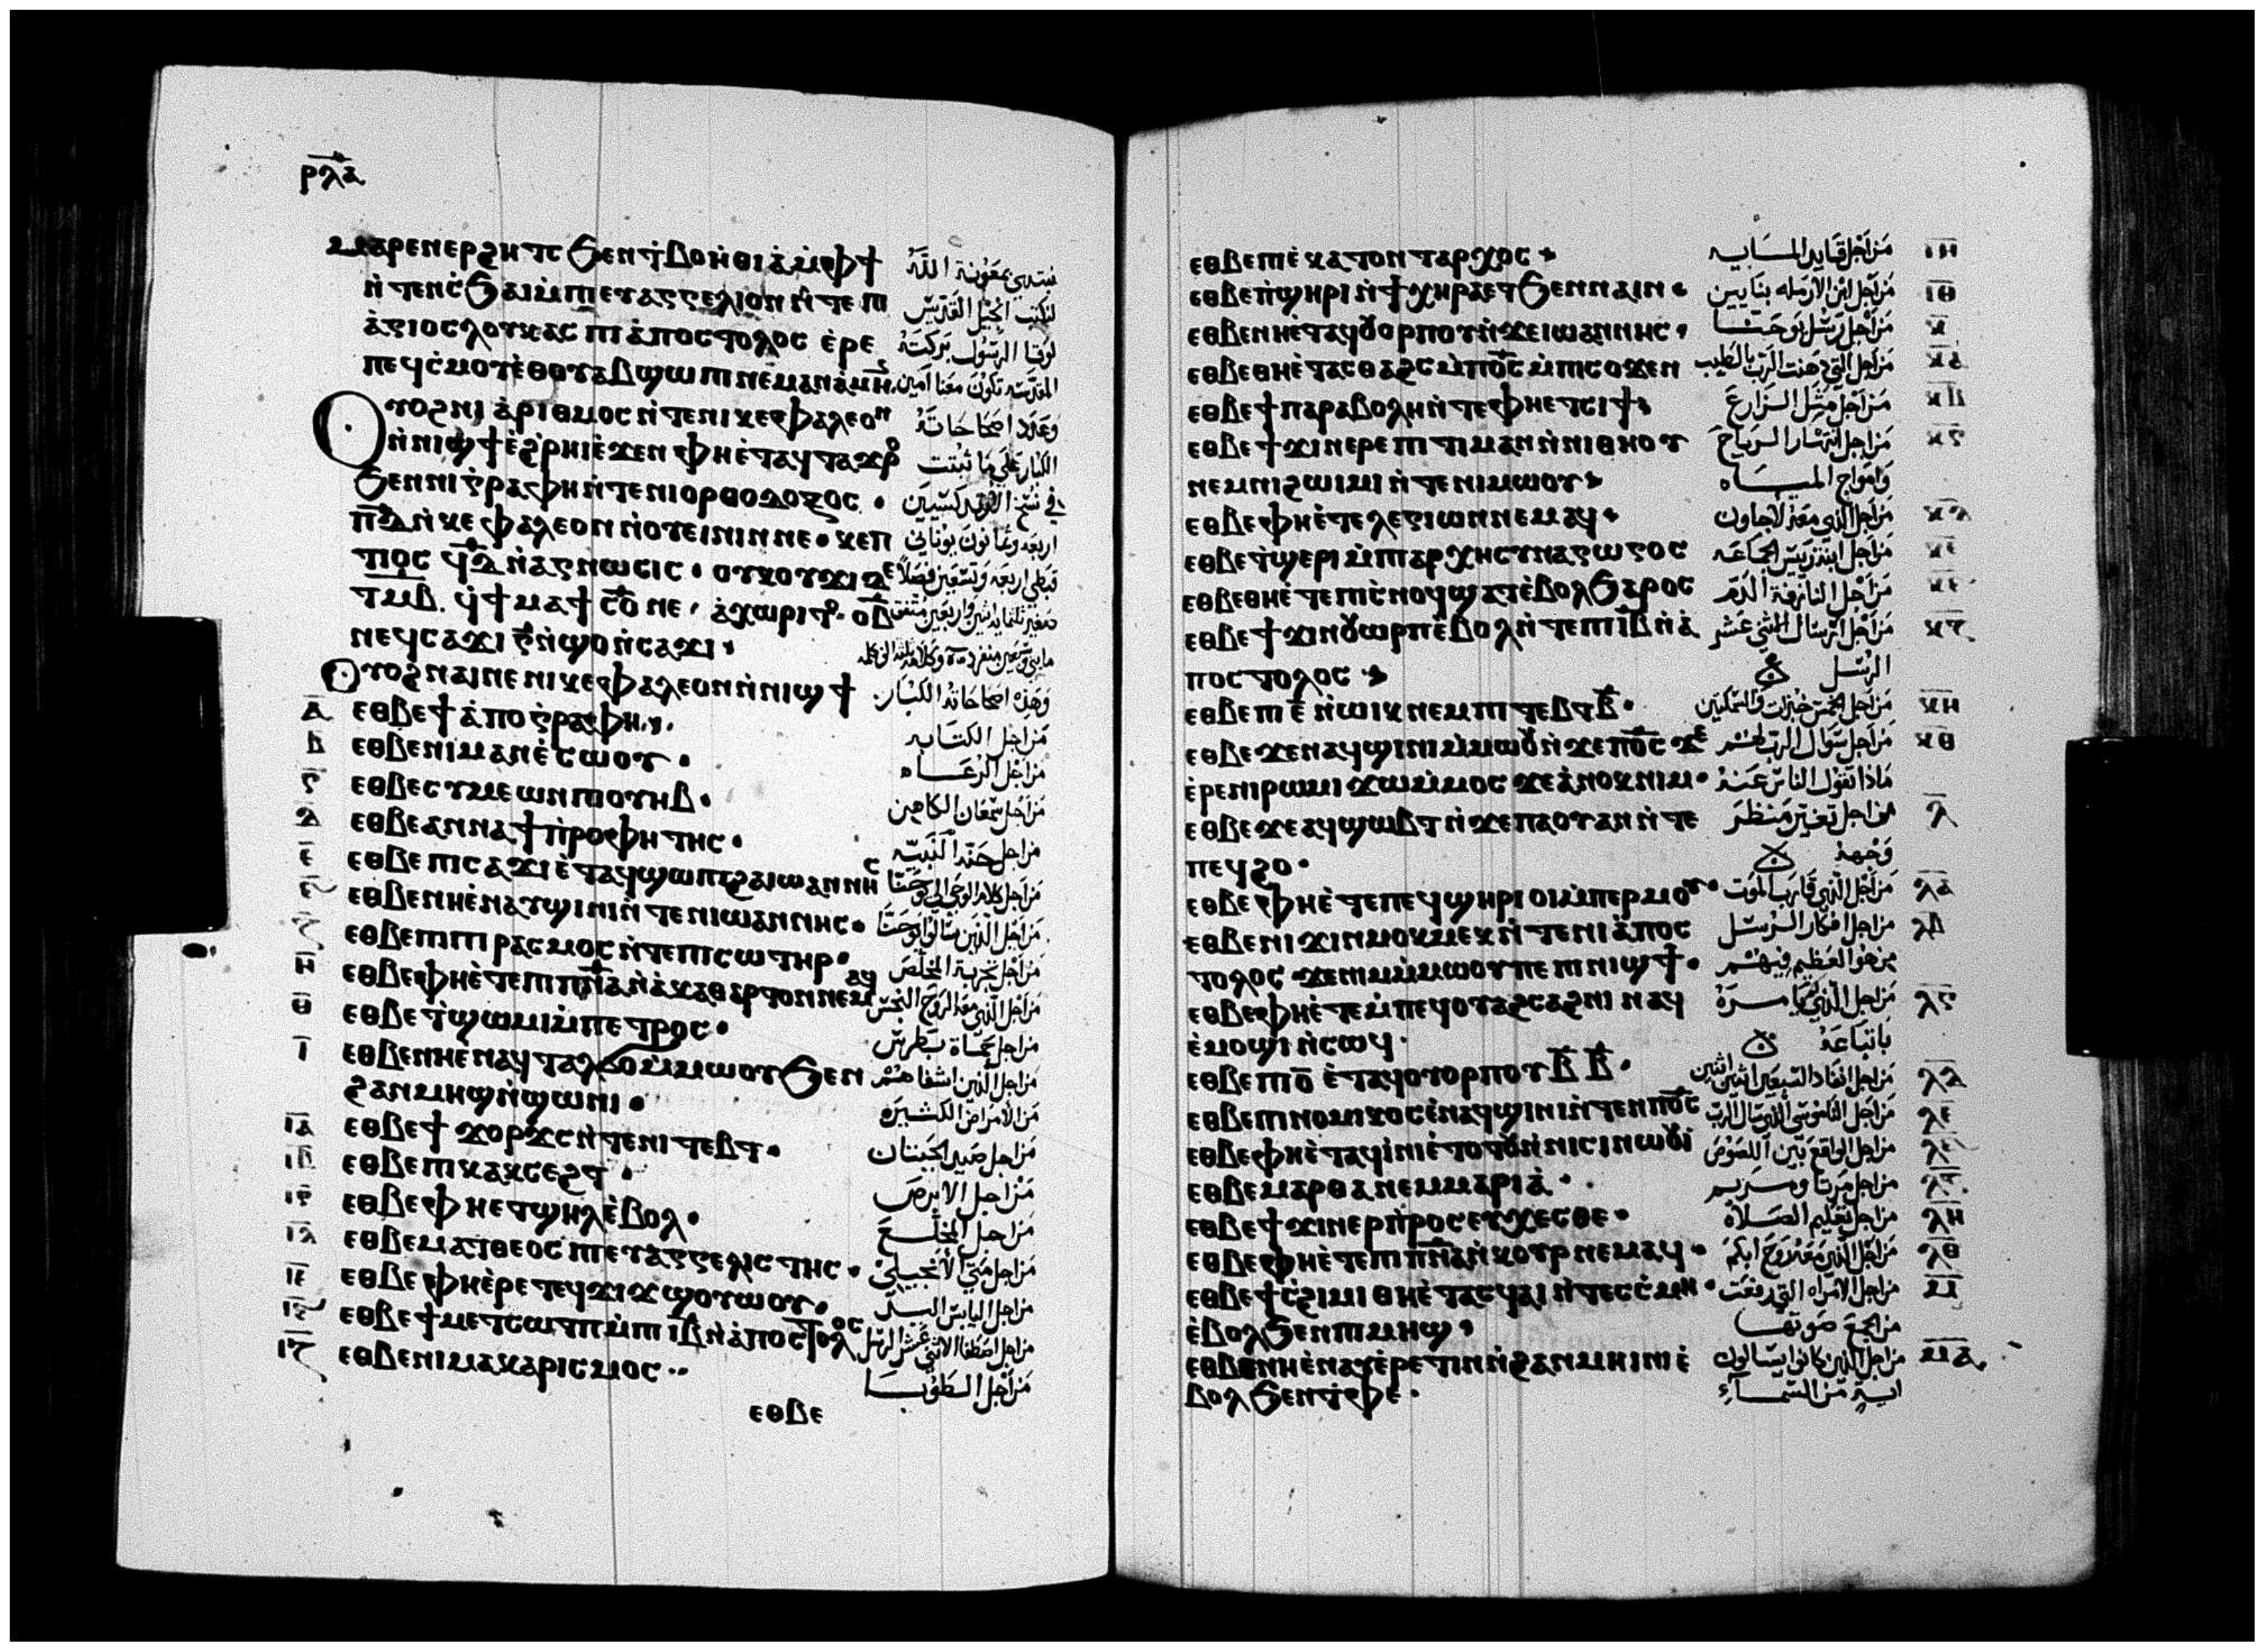 ⲣⲗⲁ
ⲙⲁⲣⲉⲛⲉⲣϩⲏⲧⲥ ϧⲉⲛϯⲃⲟⲏⲑⲓⲁ ⲙⲫϯ نبتدي بمعونة الله
ⲛⲧⲉⲛⲥϧⲁⲓ ⲙⲡⲓⲉⲩⲁⲅⲅⲉⲗⲓⲟⲛ ⲛⲧⲉⲡⲓ لنكتب انجيل القديس
ⲁⲅⲓⲟⲥ ⲗⲟⲩⲕⲁⲥ ⲡⲓⲁⲡⲟⲥⲧⲟⲗⲟⲥ ⲉⲣⲉ لوقا الرسول بركته
ⲡⲉϥⲥⲙⲟⲩ ⲉⲑⲟⲩⲁⲃ ϣⲱⲡⲓ ⲛⲉⲙⲁⲛ ⲁⲙⲏⲛ المقدسه تكون معنا امين
ⲟⲩⲟϩ ⲛⲓⲁⲣⲓⲑⲙⲟⲥ ⲛⲧⲉⲛⲓⲕⲉⲫⲁⲗⲉⲟⲛ وعدد اصحاحاته
ⲛⲛⲓϣϯ ⲉϩⲣⲏⲓ ⲉϫⲉⲛ ⲫⲏⲉⲧⲁϥⲧⲁϫⲣⲟ الكبار على ما ثبتت
ϧⲉⲛⲛⲓⲅⲣⲁⲫⲏ ⲛⲧⲉⲛⲓⲟⲣⲑⲟⲇⲟⲝⲟⲥ في نسخ
ⲡⲇ ⲛⲕⲉⲫⲁⲗⲉⲟⲛ ⲛⲟⲩⲉⲓⲛⲓⲛⲛⲉ ⲕⲉⲡ اربعه وثمانون يوناني
ⲧⲓⲟⲥ ϥⲇ ⲛⲁⲅⲛⲱⲥⲓⲥ ⲟⲩⲕⲟⲩϫⲓ ⲇⲉ قبطي اربعه وتسعين فصلا
ⲧⲙⲃ
ⲛⲉϥⲥⲁϫⲓ ⲅ ⲛϣⲟ ⲛⲥⲁϫⲓ
ⲟⲩⲟϩ ⲛⲁⲓⲛⲉ ⲛⲓⲕⲉⲫⲁⲗⲉⲟⲛ ⲛⲛⲓϣϯ وهذه اصحاحاته الكبار
ⲁ ⲉⲑⲃⲉϯⲁⲡⲟⲅⲣⲁⲫⲏ من اجل الكتابه
ⲃ ⲉⲑⲃⲉⲛⲓⲙⲁⲛⲉⲥⲱⲟⲩ من اجل الرعاه
ⲅ ⲉⲑⲃⲉⲥⲩⲙⲉⲱⲛ ⲡⲓⲟⲩⲏⲃ من اجل سمعان الكاهن
ⲇ ⲉⲑⲃⲉⲁⲛⲛⲁ ϯⲡⲣⲟⲫⲏⲧⲏⲥ من اجل حنه النبيه
ⲉ ⲉⲑⲃⲉⲡⲓⲥⲁϫⲓ ⲉⲧⲁϥϣⲱⲡⲓ ϩⲁ ⲓⲱⲁⲛⲛⲏⲥ
ⲋ ⲉⲑⲃⲉⲛⲏⲉⲛⲁⲩϣⲓⲛⲓ ⲛⲧⲉⲛⲓⲱⲁⲛⲛⲏⲥ من اجل الذين سالوا يوحنا
ⲍ ⲉⲑⲃⲉⲡⲓⲡⲓⲣⲁⲥⲙⲟⲥ ⲛⲧⲉⲡⲓⲥⲱⲧⲏⲣ من اجل تجربة المخلص
ⲏ ⲉⲑⲃⲉⲫⲏⲉⲧⲉⲡⲓⲡⲛⲁ ⲛⲁⲕⲁⲑⲁⲣⲧⲟⲛ ⲛⲉⲙⲁϥ من اجل الذي معه الروح النجس
ⲑ ⲉⲑⲃⲉⲧϣⲱⲙⲓ ⲙⲡⲉⲧⲣⲟⲥ من اجل حماة بطرس
ⲓ ⲉⲑⲃⲉⲛⲏⲉⲛⲁϥⲧⲁⲗϭⲟ ⲙⲙⲱⲟⲩ ϧⲉⲛ من اجل الذين اشفاهم
ϩⲁⲛⲙⲏϣ ⲛϣⲱⲛⲓ من الامراض الكثيره
ⲓⲁ ⲉⲑⲃⲉϯϫⲟⲣϫⲥ ⲛⲧⲉⲛⲓⲧⲉⲃⲧ من اجل صيد الحيتان
ⲓⲃ ⲉⲑⲃⲉⲡⲓⲕⲁⲕⲥⲉϩⲧ من اجل الابرص
ⲓⲅ ⲉⲑⲃⲉⲫⲏⲉⲧϣⲏⲗ ⲉⲃⲟⲗ من اجل المخلع
ⲓⲇ ⲉⲑⲃⲉⲙⲁⲧⲑⲉⲟⲥ ⲡⲓⲉⲩⲁⲅⲅⲉⲗⲓⲥⲧⲏⲥ من اجل متي الانجيلي
ⲓⲉ ⲉⲑⲃⲉⲫⲏⲉⲣⲉⲧⲉϥϫⲓϫ ϣⲟⲩⲱⲟⲩ من اجل اليابس اليد
ⲓⲋ ⲉⲑⲃⲉϯⲙⲉⲧⲥⲱⲧⲡ ⲙⲡⲓⲓⲃ ⲛⲁⲡⲟⲥⲧⲟⲗⲟⲥ من اجل اصطفا الاثني عشر الرسل
ⲓⲍ ⲉⲑⲃⲉⲛⲓⲙⲁⲕⲁⲣⲓⲥⲙⲟⲥ من اجل الطوبا
ⲉⲑⲃⲉ
ⲉⲑⲃⲉⲡⲓⲉⲕⲁⲧⲟⲛⲧⲁⲣⲭⲟⲥ من اجل قايد الماييه ⲓⲏ
ⲉⲑⲃⲉⲡϣⲏⲣⲓ ⲛϯⲭⲏⲣⲁ ⲉⲧϧⲉⲛⲛⲁⲓⲛ من اجل ابن الارمله بنايين ⲓⲑ
ⲉⲑⲃⲉⲛⲏⲉⲧⲁϥⲟⲩⲟⲣⲡⲟⲩ ⲛϫⲉⲓⲱⲁⲛⲛⲏⲥ من اجل رسل يوحنا ⲕ
ⲉⲑⲃⲉⲑⲏⲉⲧⲁⲥⲑⲁϩⲥ ⲙⲡⲟⲥ ⲙⲡⲓⲥⲟϫⲉⲛ من اجل التي دهنت الرب بالطيب ⲕⲁ
ⲉⲑⲃⲉϯⲡⲁⲣⲁⲃⲟⲗⲏ ⲛⲧⲉⲫⲏⲉⲧⲥⲓϯ من اجل مثل الزارع ⲕⲃ
ⲉⲑⲃⲉϯϫⲓⲛⲉⲣⲉⲡⲓⲧⲓⲙⲁⲛ ⲛⲛⲓⲑⲏⲟⲩ من اجل انتهار الرياح ⲕⲅ
ⲛⲉⲙⲛⲓϩⲱⲓⲙⲓ ⲛⲧⲉⲛⲓⲙⲱⲟⲩ وامواج المياه
ⲉⲑⲃⲉⲫⲏⲉⲧⲉⲗⲉⲅⲓⲱⲛ ⲛⲉⲙⲁϥ من اجل الذي معه لاجاون ⲕⲇ
ⲉⲑⲃⲉⲧϣⲉⲣⲓ ⲙⲡⲓⲁⲣⲭⲏⲥⲩⲛⲁⲅⲱⲅⲟⲥ من اجل ابنة ريس الجماعه ⲕⲉ
ⲉⲑⲃⲉⲑⲏⲉⲧⲉⲡⲓⲥⲛⲟϥ ϣⲁⲧ ⲉⲃⲟⲗ ϧⲁⲣⲟⲥ من اجل النازفة الدم ⲕⲋ
ⲉⲑⲃⲉϯϫⲓⲛⲟⲩⲱⲣⲡ ⲉⲃⲟⲗ ⲛⲧⲉⲡⲓⲓⲃ ⲛⲁ من اجل ارسال الاثني عشر ⲕⲍ
ⲡⲟⲥⲧⲟⲗⲟⲥ الرسل
ⲉⲑⲃⲉⲡⲓⲉ ⲛⲱⲓⲕ ⲛⲉⲙⲡⲓⲧⲉⲃⲧ ⲃ من اجل الخمس خبزات والسمكتين ⲕⲏ
ⲉⲑⲃⲉϫⲉⲛⲁϥϣⲓⲛⲓ ⲙⲙⲱⲟⲩ ⲛϫⲉⲡⲟⲥ ϫⲉ من اجل سوال الرب لهم ⲕⲑ
ⲉⲣⲉⲛⲓⲣⲱⲙⲓ ϫⲱ ⲙⲙⲟⲥ ϫⲉ ⲁⲛⲟⲕ ⲛⲓⲙ ماذا تقول الناس عنه
ⲉⲑⲃⲉϫⲉⲁϥϣⲱⲃⲧ ⲛϫⲉⲡⲁⲟⲩⲁⲛ ⲛⲧⲉ من اجل تغير منظر ⲗ
ⲡⲉϥϩⲟ وجهه
ⲉⲑⲃⲉⲫⲏⲉⲧⲉⲡⲉϥϣⲏⲣⲓ ⲟⲓ ⲙⲡⲉⲣⲙⲟⲩ من اجل الذي قارب الموت ⲗⲁ
ⲉⲑⲃⲉⲛⲓϫⲓⲛⲙⲟⲕⲙⲉⲕ ⲛⲧⲉⲛⲓⲁⲡⲟⲥ من اجل افكار الرسل ⲗⲃ
ⲧⲟⲗⲟⲥ ϫⲉ ⲛⲓⲙ ⲙⲙⲱⲟⲩ ⲡⲉ ⲡⲓⲛⲓϣϯ من هو العظيم فيهم
ⲉⲑⲃⲉⲫⲏⲉⲧⲉⲙⲡⲉϥⲟⲩⲁϩⲥⲁϩⲛⲓ ⲛⲁϥ من اجل الذي لم يامره ⲗⲅ
ⲉⲙⲟϣⲓ ⲛⲥⲱϥ باتباعه
ⲉⲑⲃⲉⲡⲓⲟ ⲉⲧⲁϥⲟⲩⲟⲣⲡⲟⲩ ⲃ ⲃ من اجل انفاد السبعين اثنين اثنين ⲗⲇ
ⲉⲑⲃⲉⲡⲓⲛⲟⲙⲓⲕⲟⲥ ⲉⲛⲁϥϣⲓⲛⲓ ⲛⲧⲉⲛⲡⲟⲥ ⲗⲉ
ⲉⲑⲃⲉⲫⲏⲉⲧⲁϥⲓⲛⲓ ⲉⲧⲟⲧⲟⲩ ⲛⲛⲓⲥⲓⲛⲱⲟⲩⲓ من اجل الواقع بين اللصوص ⲗⲋ
ⲉⲑⲃⲉⲙⲁⲣⲑⲁ ⲛⲉⲙⲙⲁⲣⲓⲁ من اجل مرتا ومريم ⲗⲍ
ⲉⲑⲃⲉϯϫⲓⲛⲉⲣⲡⲣⲟⲥⲉⲩⲭⲉⲥⲑⲉ من اجل تعليم الصلاه ⲗⲏ
ⲉⲑⲃⲉⲫⲏⲉⲧⲉⲡⲓⲡⲛⲁ ⲛⲕⲟⲩⲣ ⲛⲉⲙⲁϥ من اجل الذي معه روح ابكم ⲗⲑ
ⲉⲑⲃⲉϯⲥϩⲓⲙⲓ ⲑⲏⲉⲧⲁⲥϥⲁⲓ ⲛⲧⲉⲥⲥⲙⲏ من اجل الامراه التي رفعت ⲙ
ⲉⲃⲟⲗ ϧⲉⲛⲡⲓⲙⲏϣ من الجمع صوتها
ⲉⲑⲃⲉⲛⲏⲉⲛⲁⲩⲉⲣⲉⲧⲓⲛ ⲛϩⲁⲛⲙⲏⲓⲛⲓ ⲉ من اجل الذين كانوا يسالون ⲙⲁ
ⲃⲟⲗ ϧⲉⲛⲧⲫⲉ اية من السماء